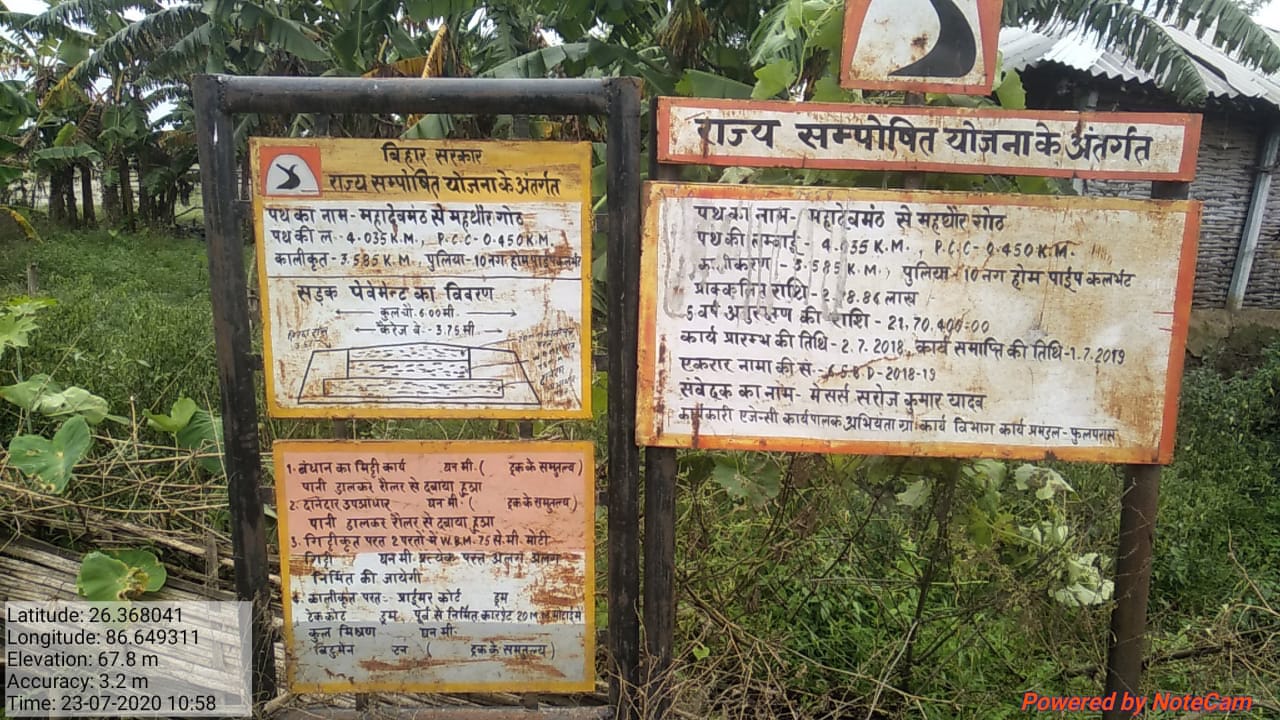 बिहार सरकार
राज्य सम्पोषित योजना के अंतर्गत
पथ का नाम- महादेवमंठ से महथौर गोठ
पथ की ल.-4.035 K.M., P.C.C-0.450 K.M.
कालीकृत-3.585 K.M., पुलिया-10 नग होम पाईप कलभंट
सड़क पेवेमेन्ट का विवरण
कुल चौ. 6.00 मी.
कैरेज वे.- 3.75 मी.
1. बंधान का मिट्टी कार्य घन मी. ( ट्रक के समतुल्य)
पानी डालकर रौलर से दबाया हुआ
2. दानेदार उपआधार घन मी. ( ट्रक के समतुल्य)
पानी डालकर रौलर से दबाया हुआ
3. गिट्टीकृत परत 2 परतो में W.B.M. 75 से.मी. मोटी
गिट्टी घन मी. प्रत्येक परत अलग अलग
निर्मित की जायेगी
4. कालीकृत परत:- प्राईमर कोर्ट ड्रम
टेककोट ड्रम, पूर्व से निर्मित कारपेट 20
कुल मिश्रण घन मी.
बिटुमेन टन ( ट्रक के समतुल्य)
राज्य सम्पोषित योजना के अंतर्गत
पथ का नाम- महादेवमंठ से महथौर गोठ
पथ की लम्बाई- 4.035 K.M., P.C.C-0.450 K.M.
कालीकरण-3.585 K.M., पुलिया-10 नग होम पाईप कलभंट
प्राक्कलित राशि- 8.86 लाख
5 वर्ष अनुरक्षण की राशि-21,70,400=00
कार्य प्रारम्भ की तिथि-2.7.2018, कार्य समाप्ति की तिथि-1.7.2019
एकरार नामा की सं.- 658 D-2018-19
संवेदक का नाम- मेसर्स सरोज कुमार यादव
कार्यकारी एजेन्सी कार्यपालक अभियंता ग्रा. कार्य विभाग कार्य प्रमंडल-फुलपरास
Latitude: 26.368041
Longitude: 86.649311
Elevation: 67.8 m
Accuracy: 3.2 m
Time: 23-07-2020 10:58
Powered by NoteCam